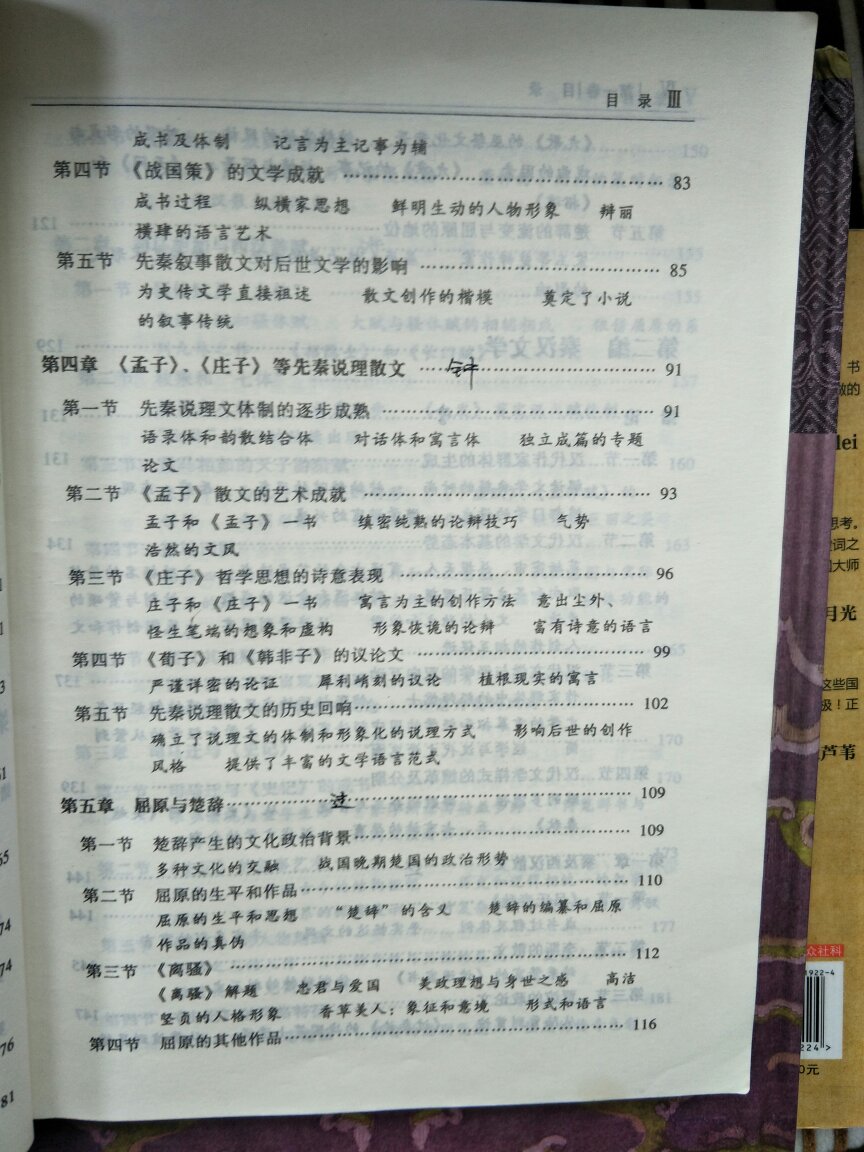 目 录 Ⅲ
成书及体制 记言为主记事为辅
第四节 《战国策》的文学成就 …… 83
成书过程 纵横家思想 鲜明生动的人物形象 辩丽
横肆的语言艺术
第五节 先秦叙事散文对后世文学的影响 …… 85
为史传文学直接祖述 散文创作的楷模 奠定了小说
的叙事传统
第四章 《孟子》、《庄子》等先秦说理散文 …… 91
第一节 先秦说理文体制的逐步成熟 …… 91
语录体和韵散结合体 对话体和寓言体 独立成篇的专题
论文
第二节 《孟子》散文的艺术成就 …… 93
孟子和《孟子》一书 缜密纯熟的论辩技巧 气势
浩然的文风
第三节 《庄子》哲学思想的诗意表现 …… 96
庄子和《庄子》一书 寓言为主的创作方法 意出尘外、
怪生笔端的想象和虚构 形象恢诡的论辩 富有诗意的语言
第四节 《荀子》和《韩非子》的议论文 …… 99
严谨详密的论证 犀利峭刻的议论 植根现实的寓言
第五节 先秦说理散文的历史回响 …… 102
确立了说理文的体制和形象化的说理方式 影响后世的创作
风格 提供了丰富的文学语言范式
第五章 屈原与楚辞 …… 过 …… 109
第一节 楚辞产生的文化政治背景 …… 109
多种文化的交融 战国晚期楚国的政治形势
第二节 屈原的生平和作品 …… 110
屈原的生平和思想 “楚辞”的含义 楚辞的编纂和屈原
作品的真伪
第三节 《离骚》 …… 112
《离骚》解题 忠君与爱国 美政理想与身世之感 高洁
坚贞的人格形象 香草美人：象征和意境 形式和语言
第四节 屈原的其他作品 …… 116
书
lei
思考。
月光
这些国
芦苇
众社科
1922-4
224>
0元
3
74
74
76
81